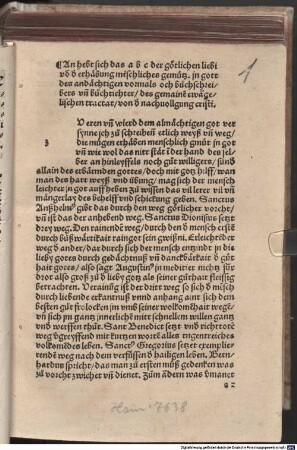 1
An hebt sich das a b c der götlichen liebi
vō d̄ erhäbung mēschliches gemütz, in gott
des andächtigen vormals och büchschrei-
bers vn̄ büchtrichter / des gemainē ewāge-
lischen tractat, von d̄ nachuollgung cristi.
Zu eren vn̄ wierd dem almächtigen got ver
synne ich zů schreiben etlich weyß vn̄ weg /
die mügen erhäben menschlich gmüt in got
vn̄ wie wol das nit stät in der hand des sel-
ber an hinleyssels noch gůt williger / sund̄
allain des erbärmden gottes / doch mit gotz hilff / wan
man des hart weyß vnd übung / mag sich der mensch
leichter in got auff heben zů wissen das vil lerer vil vn̄
mängerlay des bshelff vnd schickung geben. Sanctus
Anßhelm9 gibt das durch den weg götlicher vorcht /
vn̄ ist das der anhebend weg. Sanctus Dionisius setzt
drey weg. Den rainendē weg / durch den d̄ mensch erstē
durch
gait ander / das durch sich der mensch entzindet in die
liebi gottes durch gedächtnuß vn̄ danckbärkait d̄ gůt
hait gottes / also sagt Augustin9 in mediner michtz für
dror also groß zů d̄ liebi gotz als seiner gůthait fleissig
betrachten. Verainung ist der dritt weg so sich d̄ mēsch
durch liebende erkantnuß vnnd anhang aint sich dem
besten gůt frolocken in vmb seiner volkomēhait wegē /
vn̄ sich im gantz innerlichē mitt schnellem willen gantz
vnd werffen thůt. Sant Benedict setzt vnd richt
weg begreyffend mit kurtzen wortē alles
volkomēdes leben. Sanct9 Gregorius setzt exemplie-
rendē weg nach dem verfüssen d̄ hailigen leben. Bern-
hardus spricht / das man zů ersten můß gedencken was
zů vorcht zwichet vn̄ dienet. Zům ändern was vmanet
a 2
Hain 7638